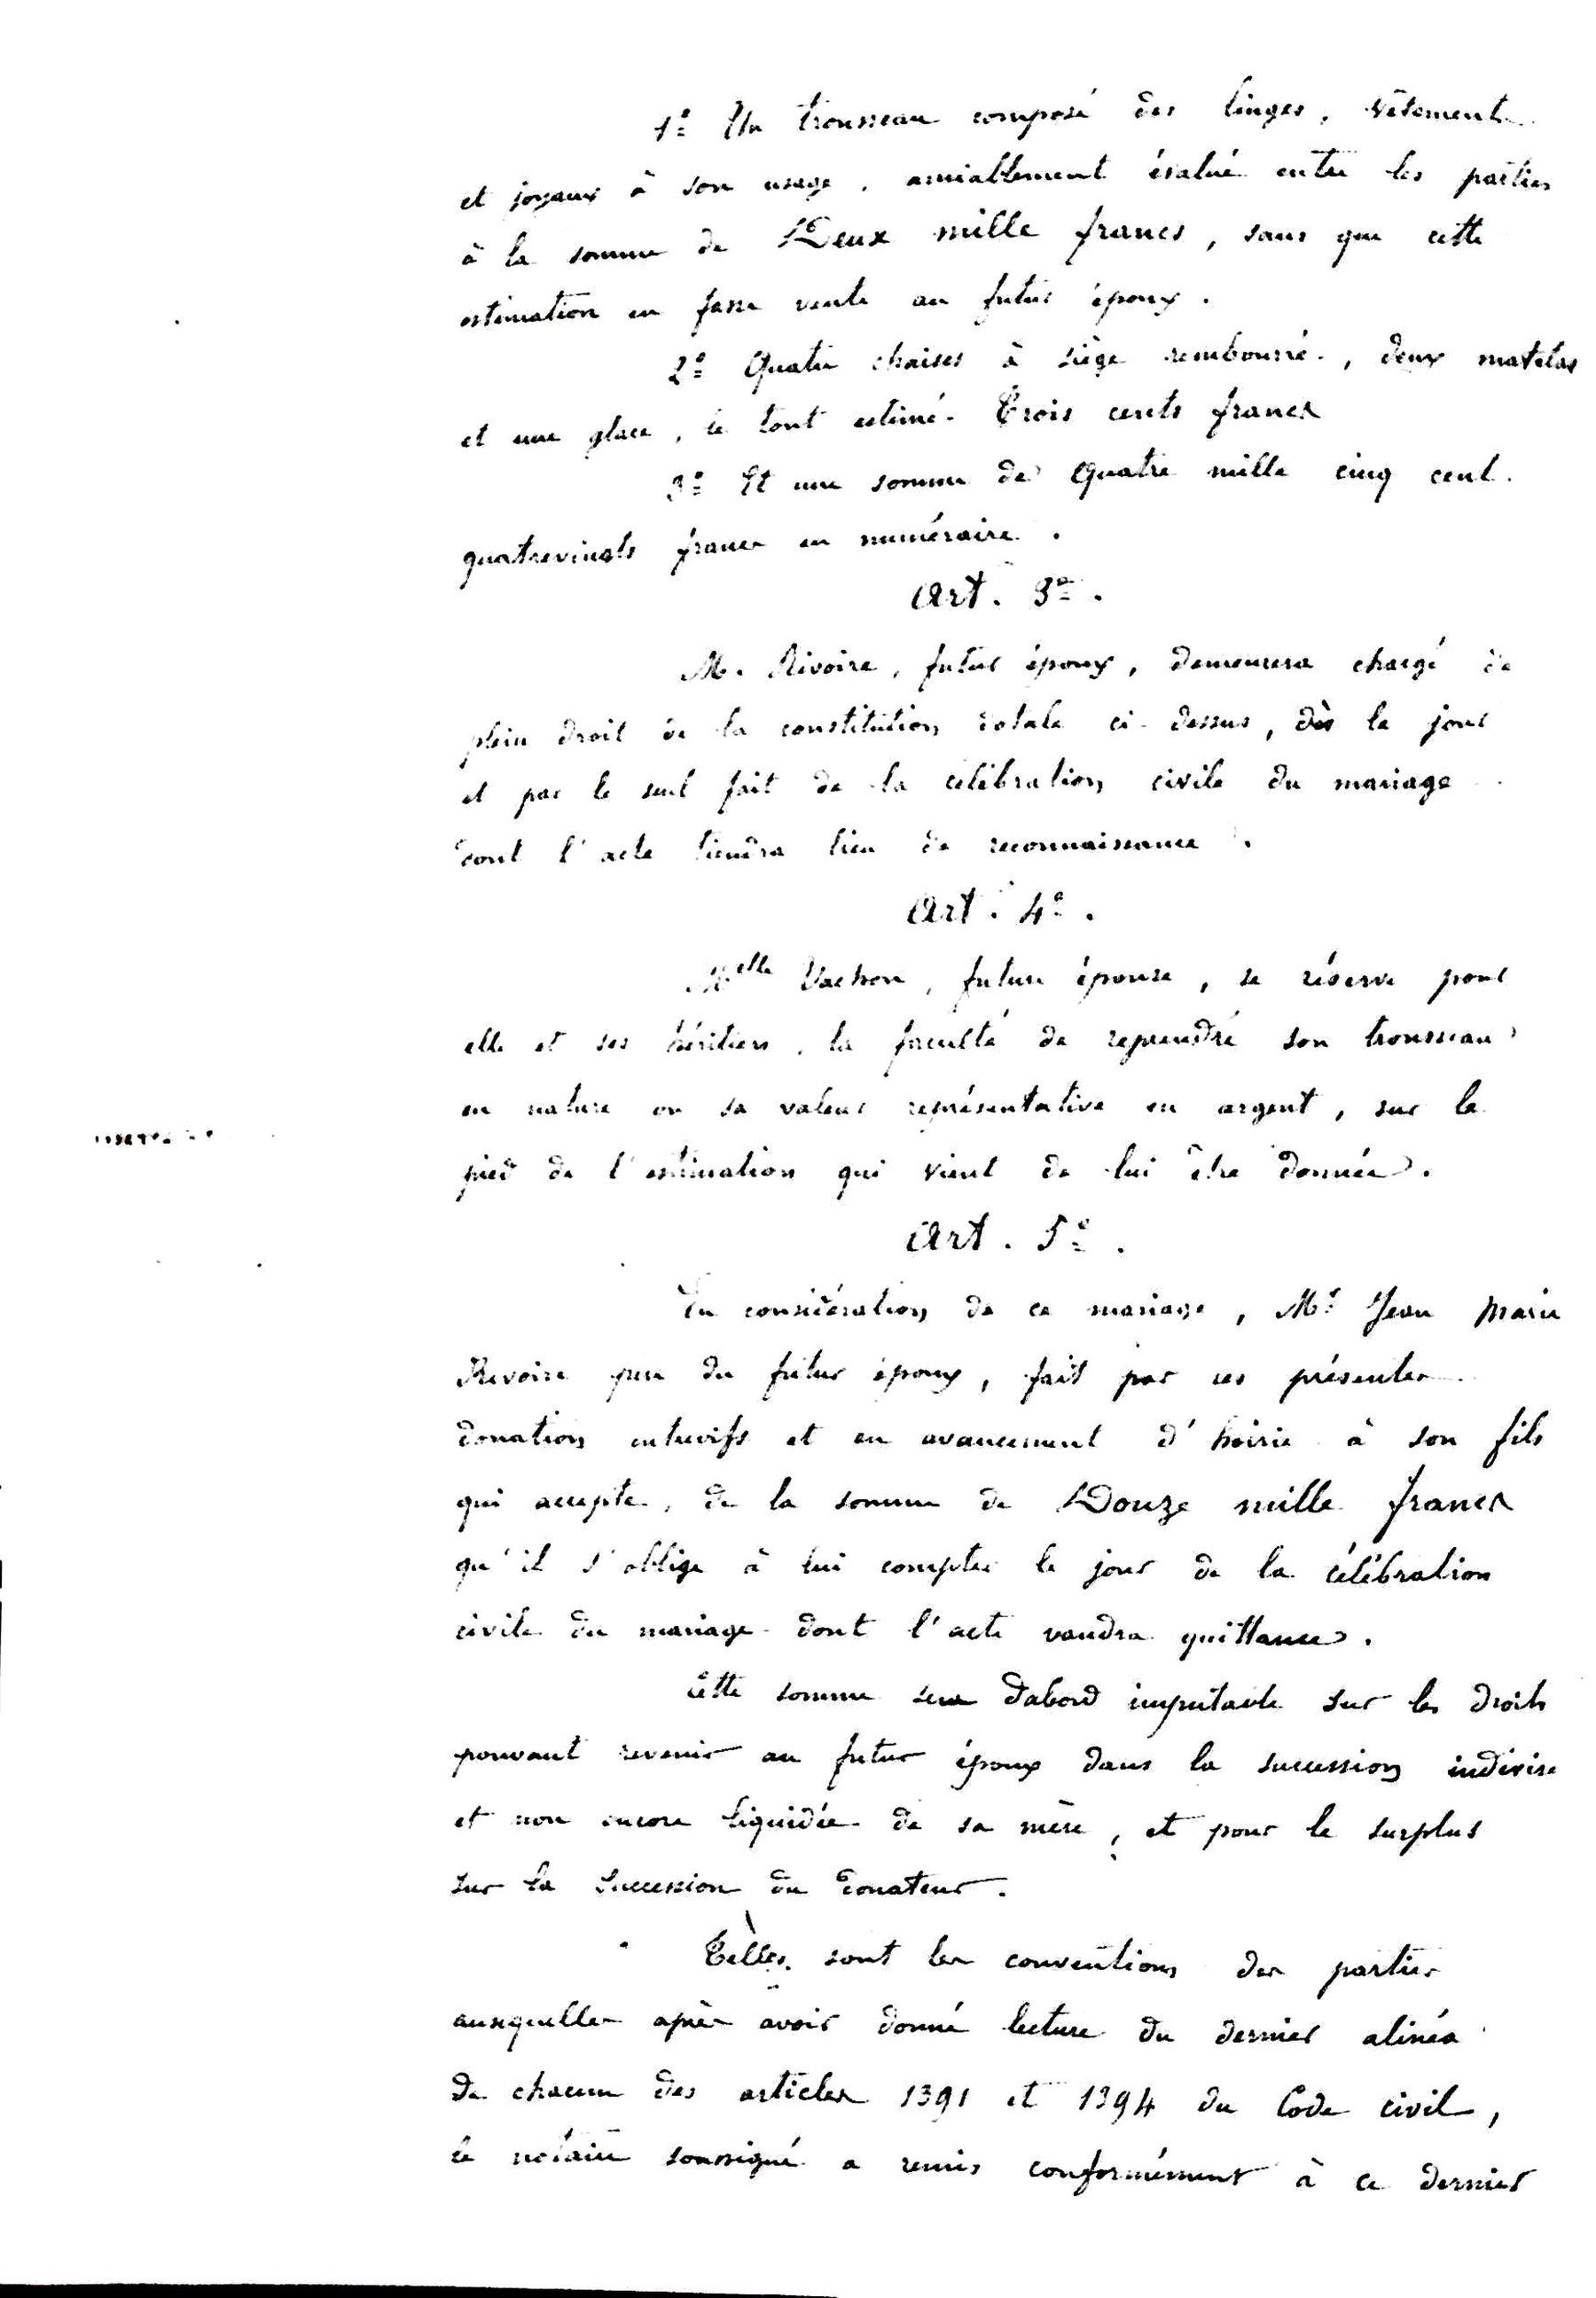 1º Un trousseau composé des linges, vêtements
et joyaux à son usage, amiablement évalué entre les parties
à la somme de Deux mille francs, sans que cette
estimation en fasse vente au futur époux.
2º Quatre chaises à siège rembourré, deux matelas
et une glace, le tout estimé Trois cents francs
3º Et une somme de Quatre mille cinq cent
quatrevingts francs en numéraire.
Art. 3e.
M. Rivoire, futur époux, demeurera chargé de
plein droit de la constitution dotale ci-dessus, dès le jour
et par le seul fait de la célébration civile du mariage
dont l'acte tiendra lieu de reconnaissance.
Art. 4e.
Melle Vachon, future épouse, se réserve pour
elle et ses héritiers, la faculté de reprendre son trousseau
en nature ou sa valeur représentative en argent, sur le
pied de l'estimation qui vient de lui être donnée.
Art. 5e.
En considération de ce mariage, Mr Jean Marie
Rivoire père du futur époux, fait par ces présentes
donation entrevifs et en avancement d'hoirie à son fils
qui accepte, de la somme de Douze mille francs
qu'il s'oblige à lui compter le jour de la célébration
civile du mariage dont l'acte vaudra quittance.
Cette somme sera dabord imputable sur les droits
pouvant revenir au futur époux dans la succession indivise
et non encore liquidée de sa mère, et pour le surplus
sur la succession du donateur.
Telles sont les conventions des parties
auxquelles après avoir donné lecture du dernier alinéa
de chacun des articles 1391 et 1394 du Code civil,
le notaire soussigné a remis conformément à ce dernier